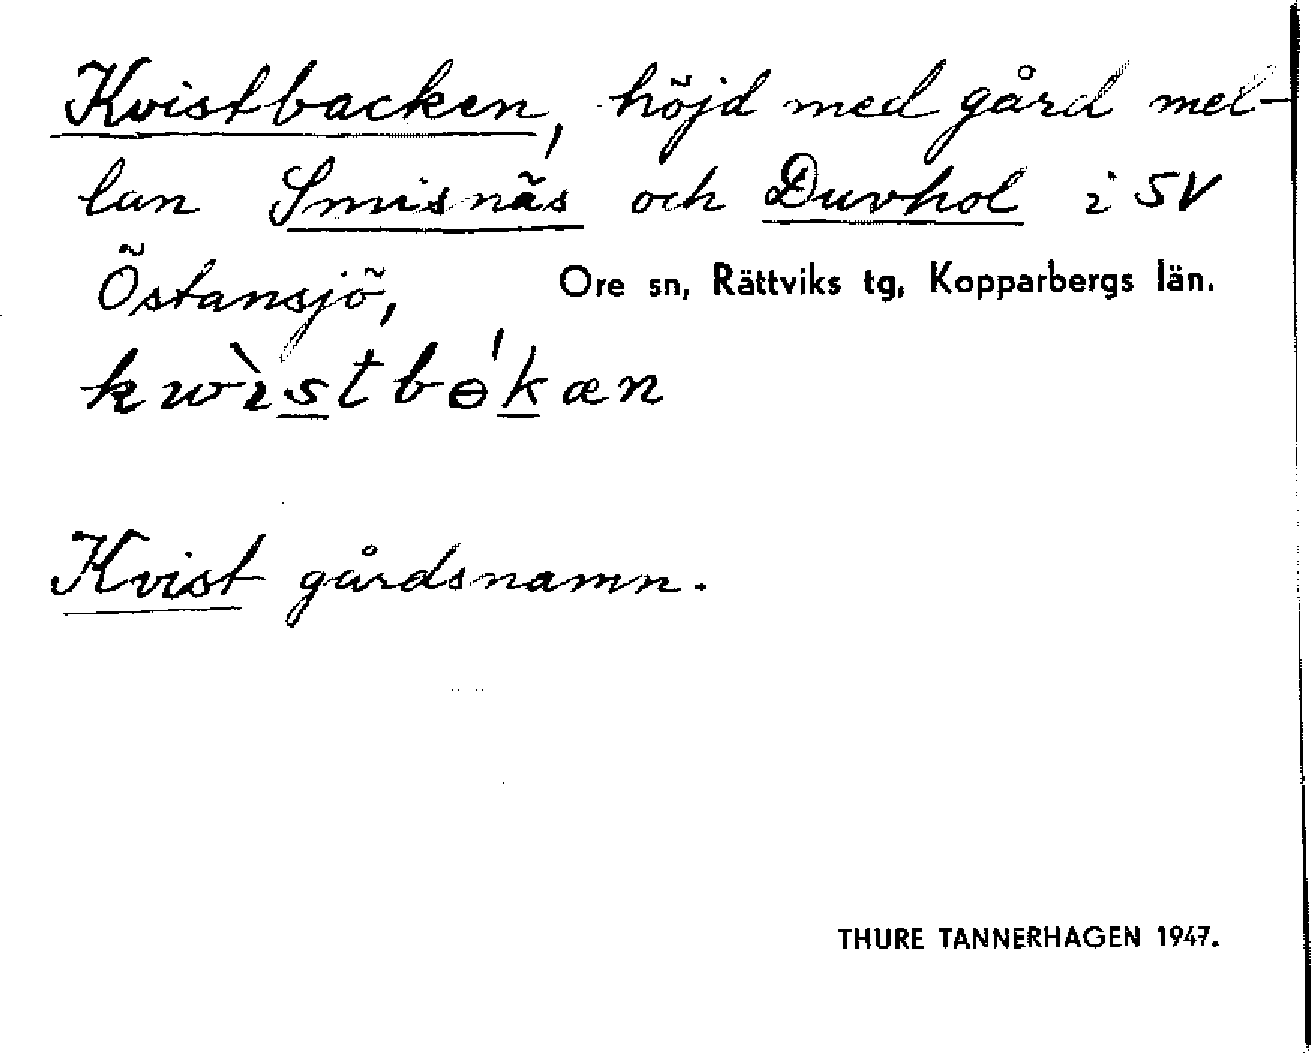 Kvistbacken, höjd med gård mel-
lan Smisnäs och Duvhol i SV
Östansjö, Ore sn, Rättviks tg, Kopparbergs län.
kwìstbɵ́kæn
Kvist gårdsnamn.
THURE TANNERHAGEN 1947.